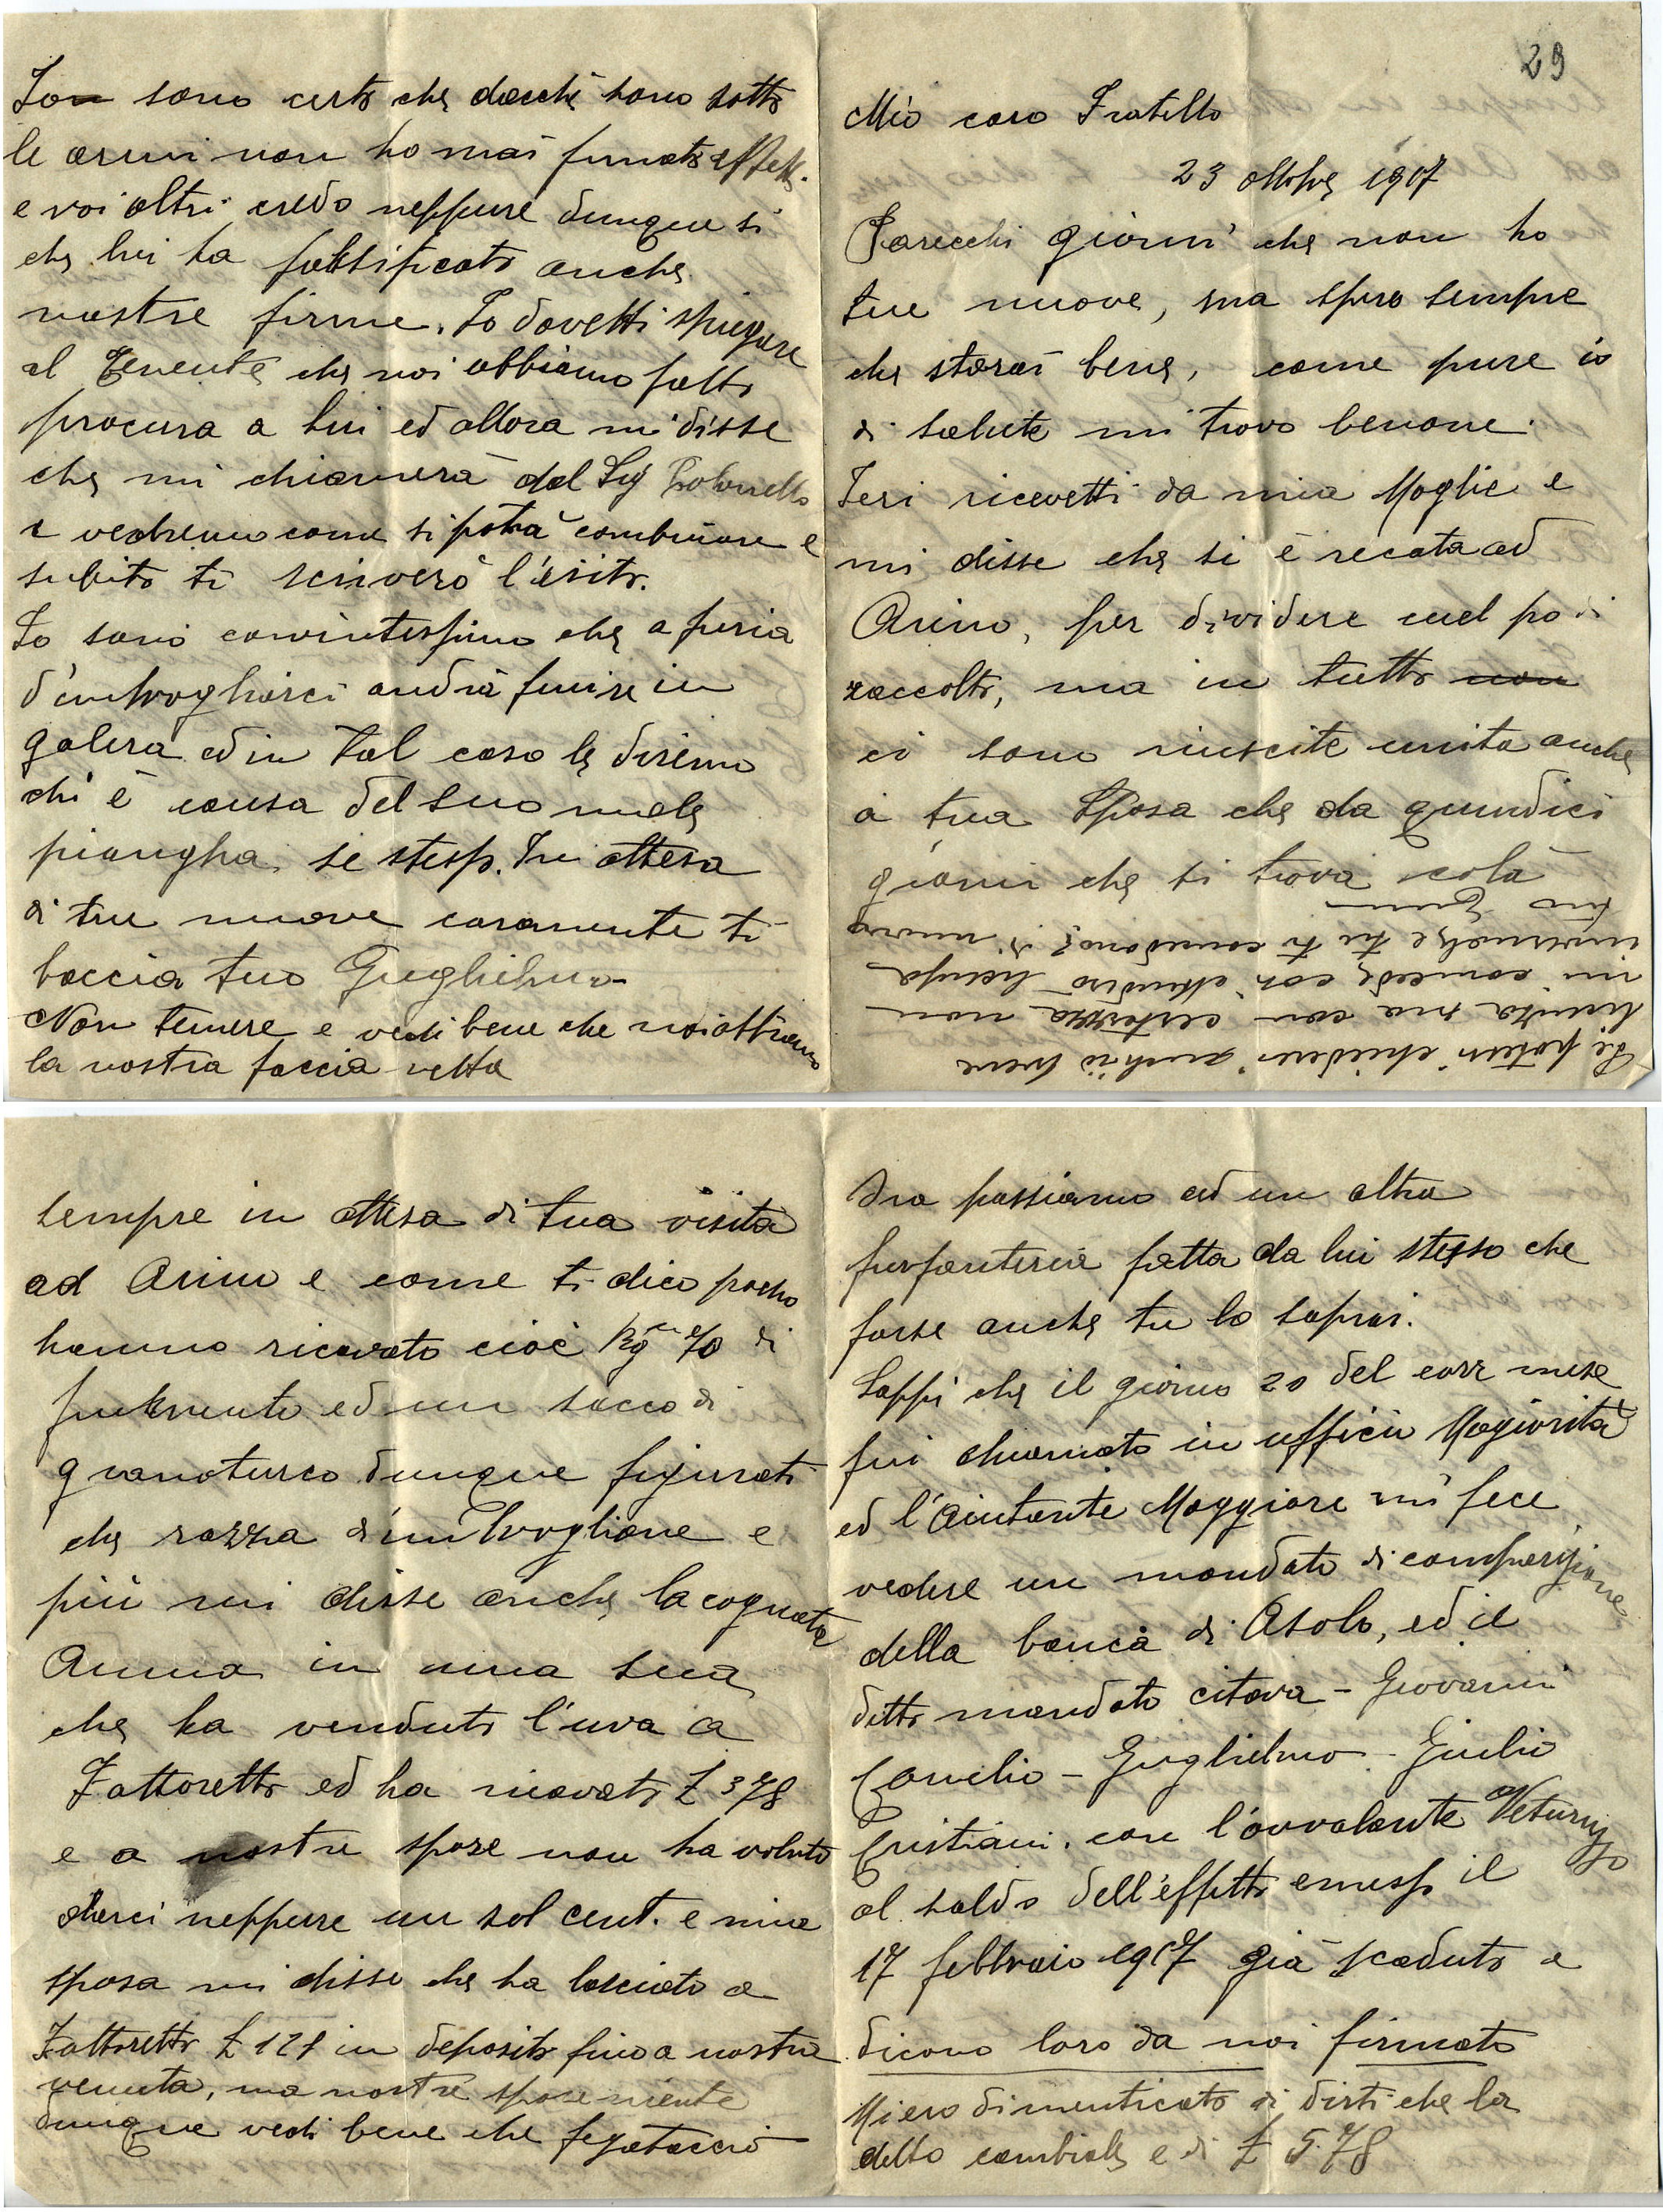 29
Mio caro Fratello
23 ottobre 1917
Parecchi giorni che non ho
tue nuove, ma spero sempre
che starai bene, come pure io
di salute mi trovo benone.
Ieri ricevetti da mia Moglie e
mi disse che si è recata ad
Arino, per dividere quel po di
raccolto, ma in tutto non
ci sono riuscite unita anche
a tua Sposa che da quindici
giorni che si trova colà
sempre in attesa di tua visita
ad Arino e come ti dico pocho
hanno ricavato cioè Kg 70 di
frukmento ed un sacco di
granoturco dunque figurati
che razza d'imbroglione e
più mi disse anche la cognata
Anna in una sua
che ha venduto l'uva a
Fattoretto ed ha ricavato £ 378
e a nostre spose non ha voluto
darci neppure un sol cent. e mia
sposa mi disse che ha lasciato a
Fattoretto £ 128 in deposito fino a nostra
venuta, ma nostre spose niente
dunque vedi bene che fegataccio
Ora passiamo ad un altra
furfanteria fatta da lui stesso che
forse anche tu lo saprai.
Sappi che il giorno 20 del corr mese
fui chiamato in ufficio Magiorità
ed l'Aiutante Maggiore mi fece
vedere un mandato di comparizione
della banca di Asolo, ed il
detto mandato citava - Giovanni
Cornelio - Guglielmo - Giulio
Cristiani. con l'avvalante Veturuzzo
al saldo dell'effetto emesso il
17 febbraio 1917 già scaduto e
dicono loro da noi firmato
Miero dimenticato di dirti che la
detto cambiale e di £ 578
Ion sono certo che dacchè sono sotto
le armi non ho mai firmato effetti.
e voi altri credo neppure dunque si
che lui ha falsificato anche
nostre firme. Io dovetti spiegare
al Tenente che noi abbiamo fatto
procura a lui ed allora mi disse
che mi chiamerà dal Sig Colonello
e vedremo come si potrà combinare e
subito ti scriverò l'ésito.
Io sono convintissimo che a furia
d'imbrogliarci andrà finire in
galera ed in tal caso le diremo
chi è causa del suo male
piangha se stesso. In attesa
di tue nuove caramente ti
baccia tuo Guglielmo
Non temere e vedi bene che noi abbiamo
la nostra faccia netta
Se potessi chiederei anch'io breve
licenza ma con certezza non
mi concede, così chiedero licenza
invernale e tu ti concedono? di nuovo
tuo Gmo